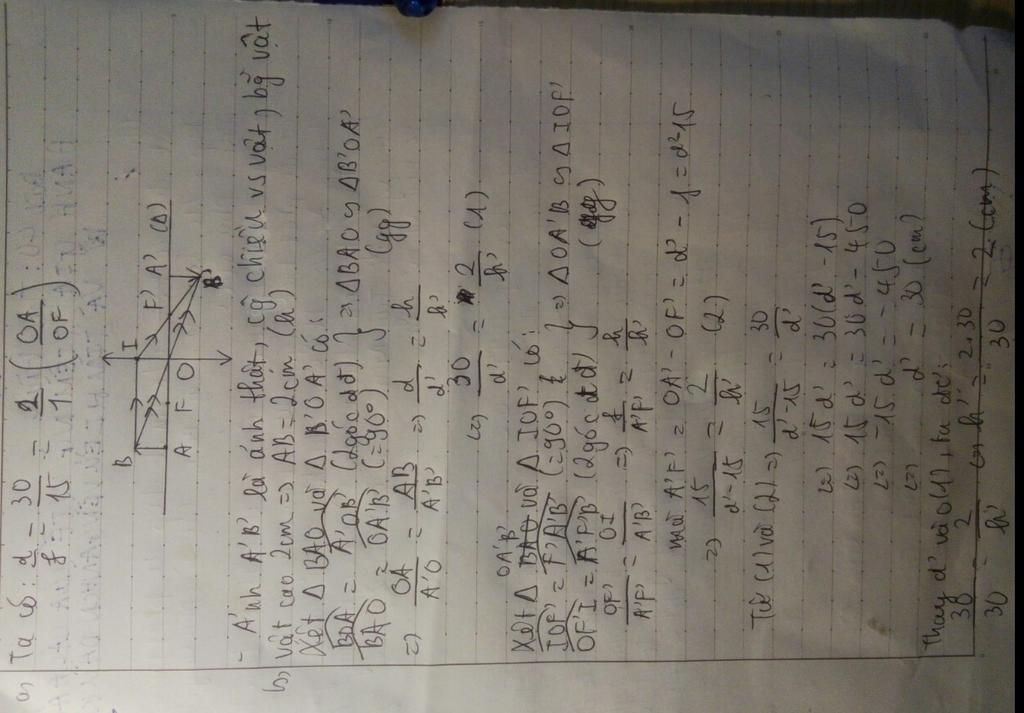 a) Ta có: d/f = 30/15 = 2/1 (OA/OF)
B I F' A' (Δ)
A F O B'
- Ảnh A'B' là ảnh thật, cg chiều vs vật, bg vật
b, vật cao 2cm => AB = 2cm (h)
Xét Δ BAO và Δ B'OA' có:
BOA = A'OB' (2 góc đđ)
BAO = OA'B' (=90°) } => ΔBAO ∽ ΔB'OA' (gg)
=> OA/A'O = AB/A'B' => d/d' = h/h'
(=) 30/d' = 2/h' (1)
Xét Δ OA'B' và Δ IOF' có:
IOF' = F'A'B' (=90°)
OF'I = A'F'B' (2 góc đđ) } => Δ OA'B ∽ Δ IOF' (gg)
OF'/A'F' = OI/A'B' => f/A'F' = h/h'
mà A'F' = OA' - OF' = d' - f = d'-15
=) 15/d'-15 = 2/h' (2)
Từ (1) và (2) =) 15/d'-15 = 30/d'
(=) 15d' = 30(d' - 15)
(=) 15d' = 30d' - 450
(=) -15d' = -450
(=) d' = 30 (cm)
Thay d' vào (1), ta đc:
30/30 = 2/h' (=) h' = 2.30/30 = 2 (cm)